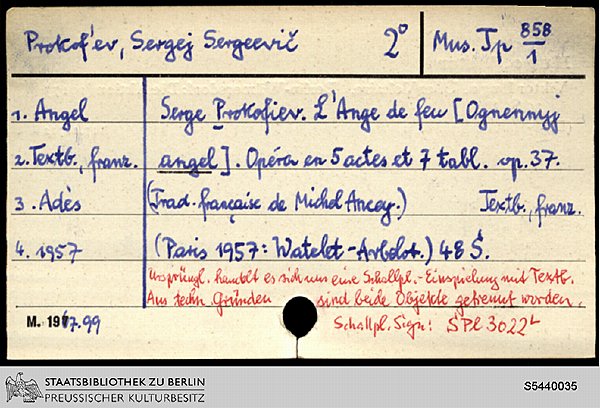 Prokof'ev, Sergej Sergeevič 2° Mus. Tp 858/1
1. Angel Serge Prokofiev. L'Ange de feu [Ognennyj
2. Textb., franz. angel]. Opéra en 5 actes et 7 tabl. op. 37.
3. Adès (Trad. française de Michel Ancey.) Textb., franz.
4. 1957 (Paris 1957: Watelet-Arbelot.) 48 S.
Ursprüngl. handelt es sich um eine Schallpl.-Einspielung mit Textb.
Aus techn. Gründen sind beide Objekte getrennt worden.
M. 1977.99 Schallpl. Sign: SPl 3022
STAATSBIBLIOTHEK ZU BERLIN
PREUSSISCHER KULTURBESITZ S5440035